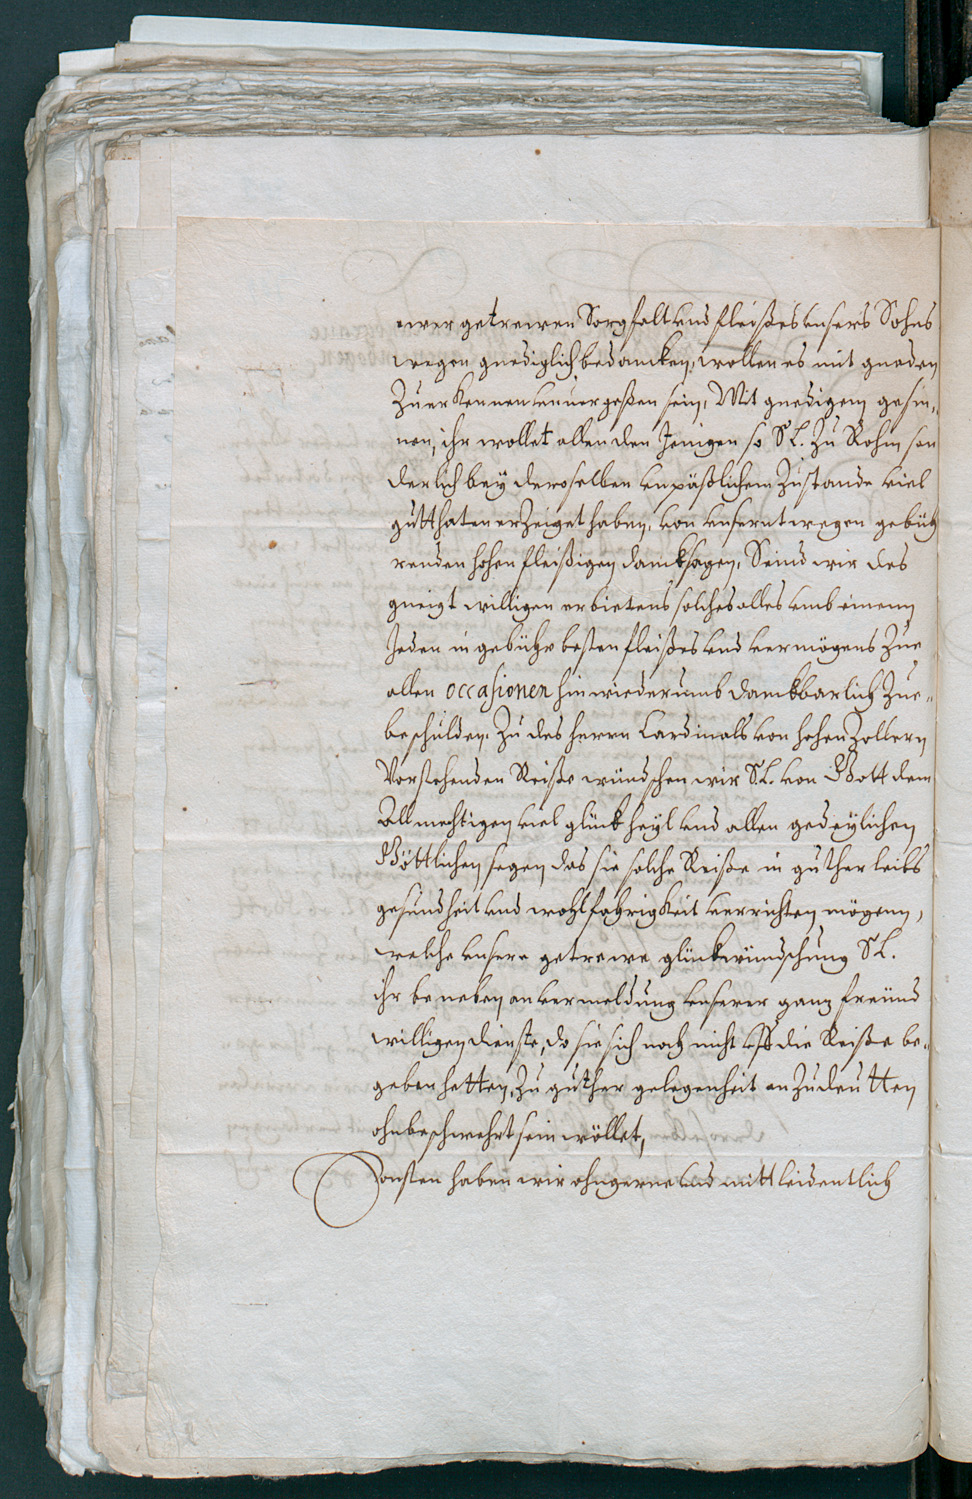 ewer getrewen Sorgfalt und fleißes unsers Sohns
wegen gnediglich bedancken, wollen es mit gnaden
Zuerkennen unuergeßen sein, Mit gnedigem gesin-
nen, ihr wollet allen den Jenigen so S L. Zu Rohm son
derlich bey deroselben unpäßlichem Zustande viel
gutthaten erZeiget haben, von unserntwegen gebüh
renden hohen fleißigen dancksagen, Seind wir des
gneigt willigen erbietens solches alles umb einem
Jeden in gebühr besten fleißes und vermögens Zue
allen occasionen hinwiederumb danckbarlich Zue-
beschulden. Zu des herrn Cardinals von hohen Zollern
Vorstehenden Reiße wündschen wir S.L. von Gott dem
Allmechtigen viel glück heyl und allen gedeylichen
Göttlichen segen das sie solche Reiße in guther leibs
gesundheit und wohlfahrigkeit verrichten mögenn,
welche unsere getrewe glückwündschung S L.
ihr beneben anvermeldung unserer ganz freund
willigen dienste, do sie sich noch nicht uff die Reiße be-
geben hetten, Zu guther gelegenheit anZudeutten
ohnbeschwehrt sein wöllet,
Sonsten haben wir ohngerne und mittleidentlich